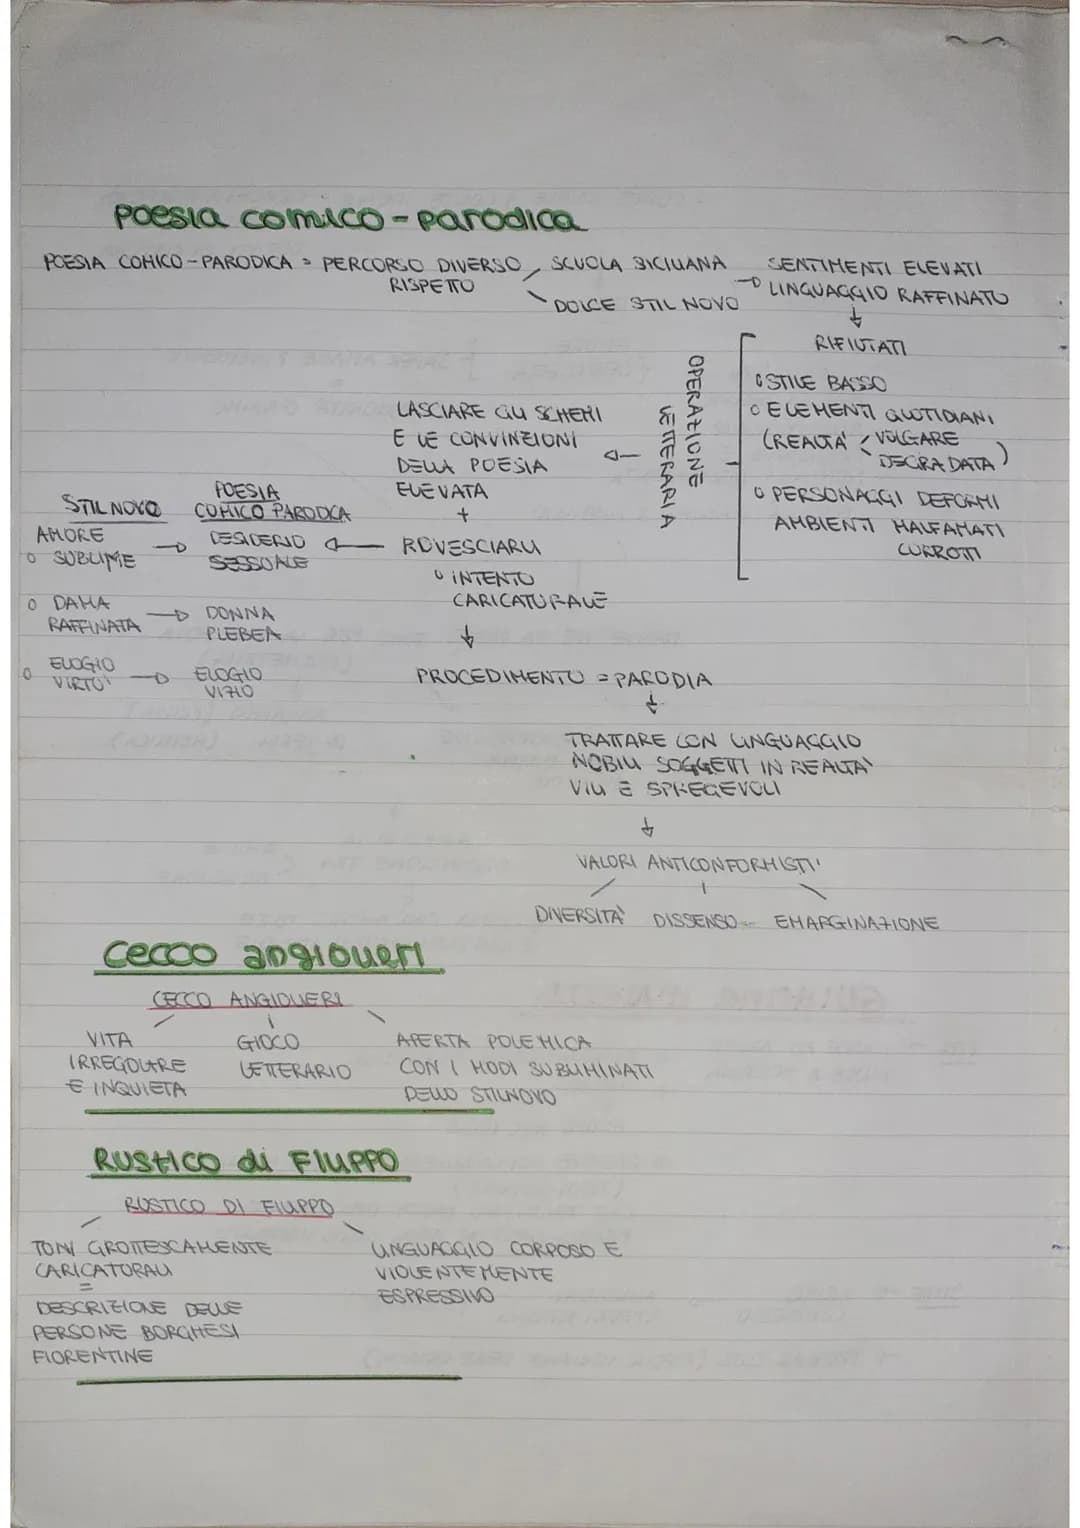 Poesia comico-parodica
POESIA COMICO-PARODICA = PERCORSO DIVERSO
RISPETTO
SCUOLA SICILIANA
DOLCE STIL NOVO
SENTIMENTI ELEVATI
→ LINGUAGGIO RAFFINATO
↓
RIFIUTATI
o STILE BASSO
o ELEMENTI QUOTIDIANI
(REALTA' VOLGARE
DEGRADATA)
o PERSONAGGI DEFORMI
AMBIENTI MALFAMATI
CORROTTI
OPERAZIONE
LETTERARIA
LASCIARE GLI SCHEMI
E LE CONVINZIONI
DELLA POESIA
ELEVATA
+
ROVESCIARLI
o INTENTO
CARICATURALE
STIL NOVO
POESIA
COMICO PARODICA
AMORE
o SUBLIME
→ DESIDERIO
SESSUALE
o DAMA
RAFFINATA
→ DONNA
PLEBEA
o ELOGIO
VIRTU'
→ ELOGIO
VIZIO
↓
PROCEDIMENTO = PARODIA
↓
TRATTARE CON LINGUAGGIO
NOBILI SOGGETTI IN REALTA'
VILI E SPREGEVOLI
↓
VALORI ANTICONFORMISTI'
DIVERSITA' DISSENSO EMARGINAZIONE
Cecco angiolieri
CECCO ANGIOLIERI
VITA
IRREGOLARE
E INQUIETA
GIOCO
LETTERARIO
APERTA POLEMICA
CON I MODI SUBLIMINATI
DELLO STILNOVO
RUSTICO di FILIPPO
RUSTICO DI FILIPPO
TONI GROTTESCAMENTE
CARICATORALI
=
DESCRIZIONE DELLE
PERSONE BORGHESI
FIORENTINE
LINGUAGGIO CORPOSO E
VIOLENTEMENTE
ESPRESSIVO